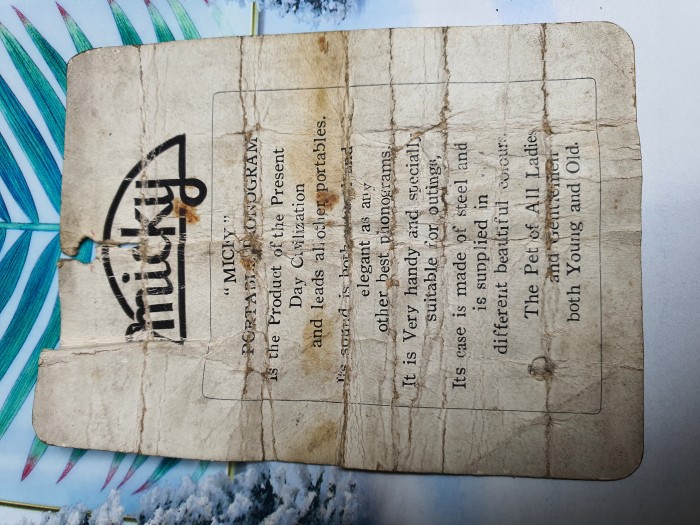 micky
"MICKY"
PORTABLE PHONOGRAM
is the Product of the Present
Day Civilization
and leads all other portables.
Its sound is and
elegant as any
other best phonograms.
It is Very handy and specially
suitable for outings,
Its case is made of steel and
is supplied in
different beautiful colours.
The Pet of All Ladies
and Gentlemen
both Young and Old.